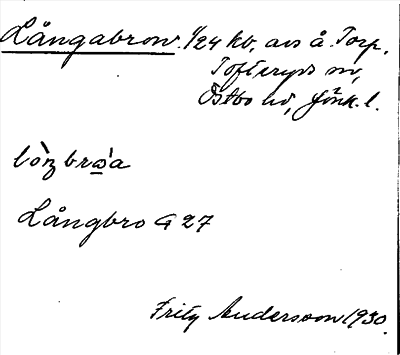 Långabron. 1/24 kb, avs å. Torp,
Tofteryds sn,
Östbo hd, Jönk. l.
Långbro G 27
Fritz Andersson 1930.